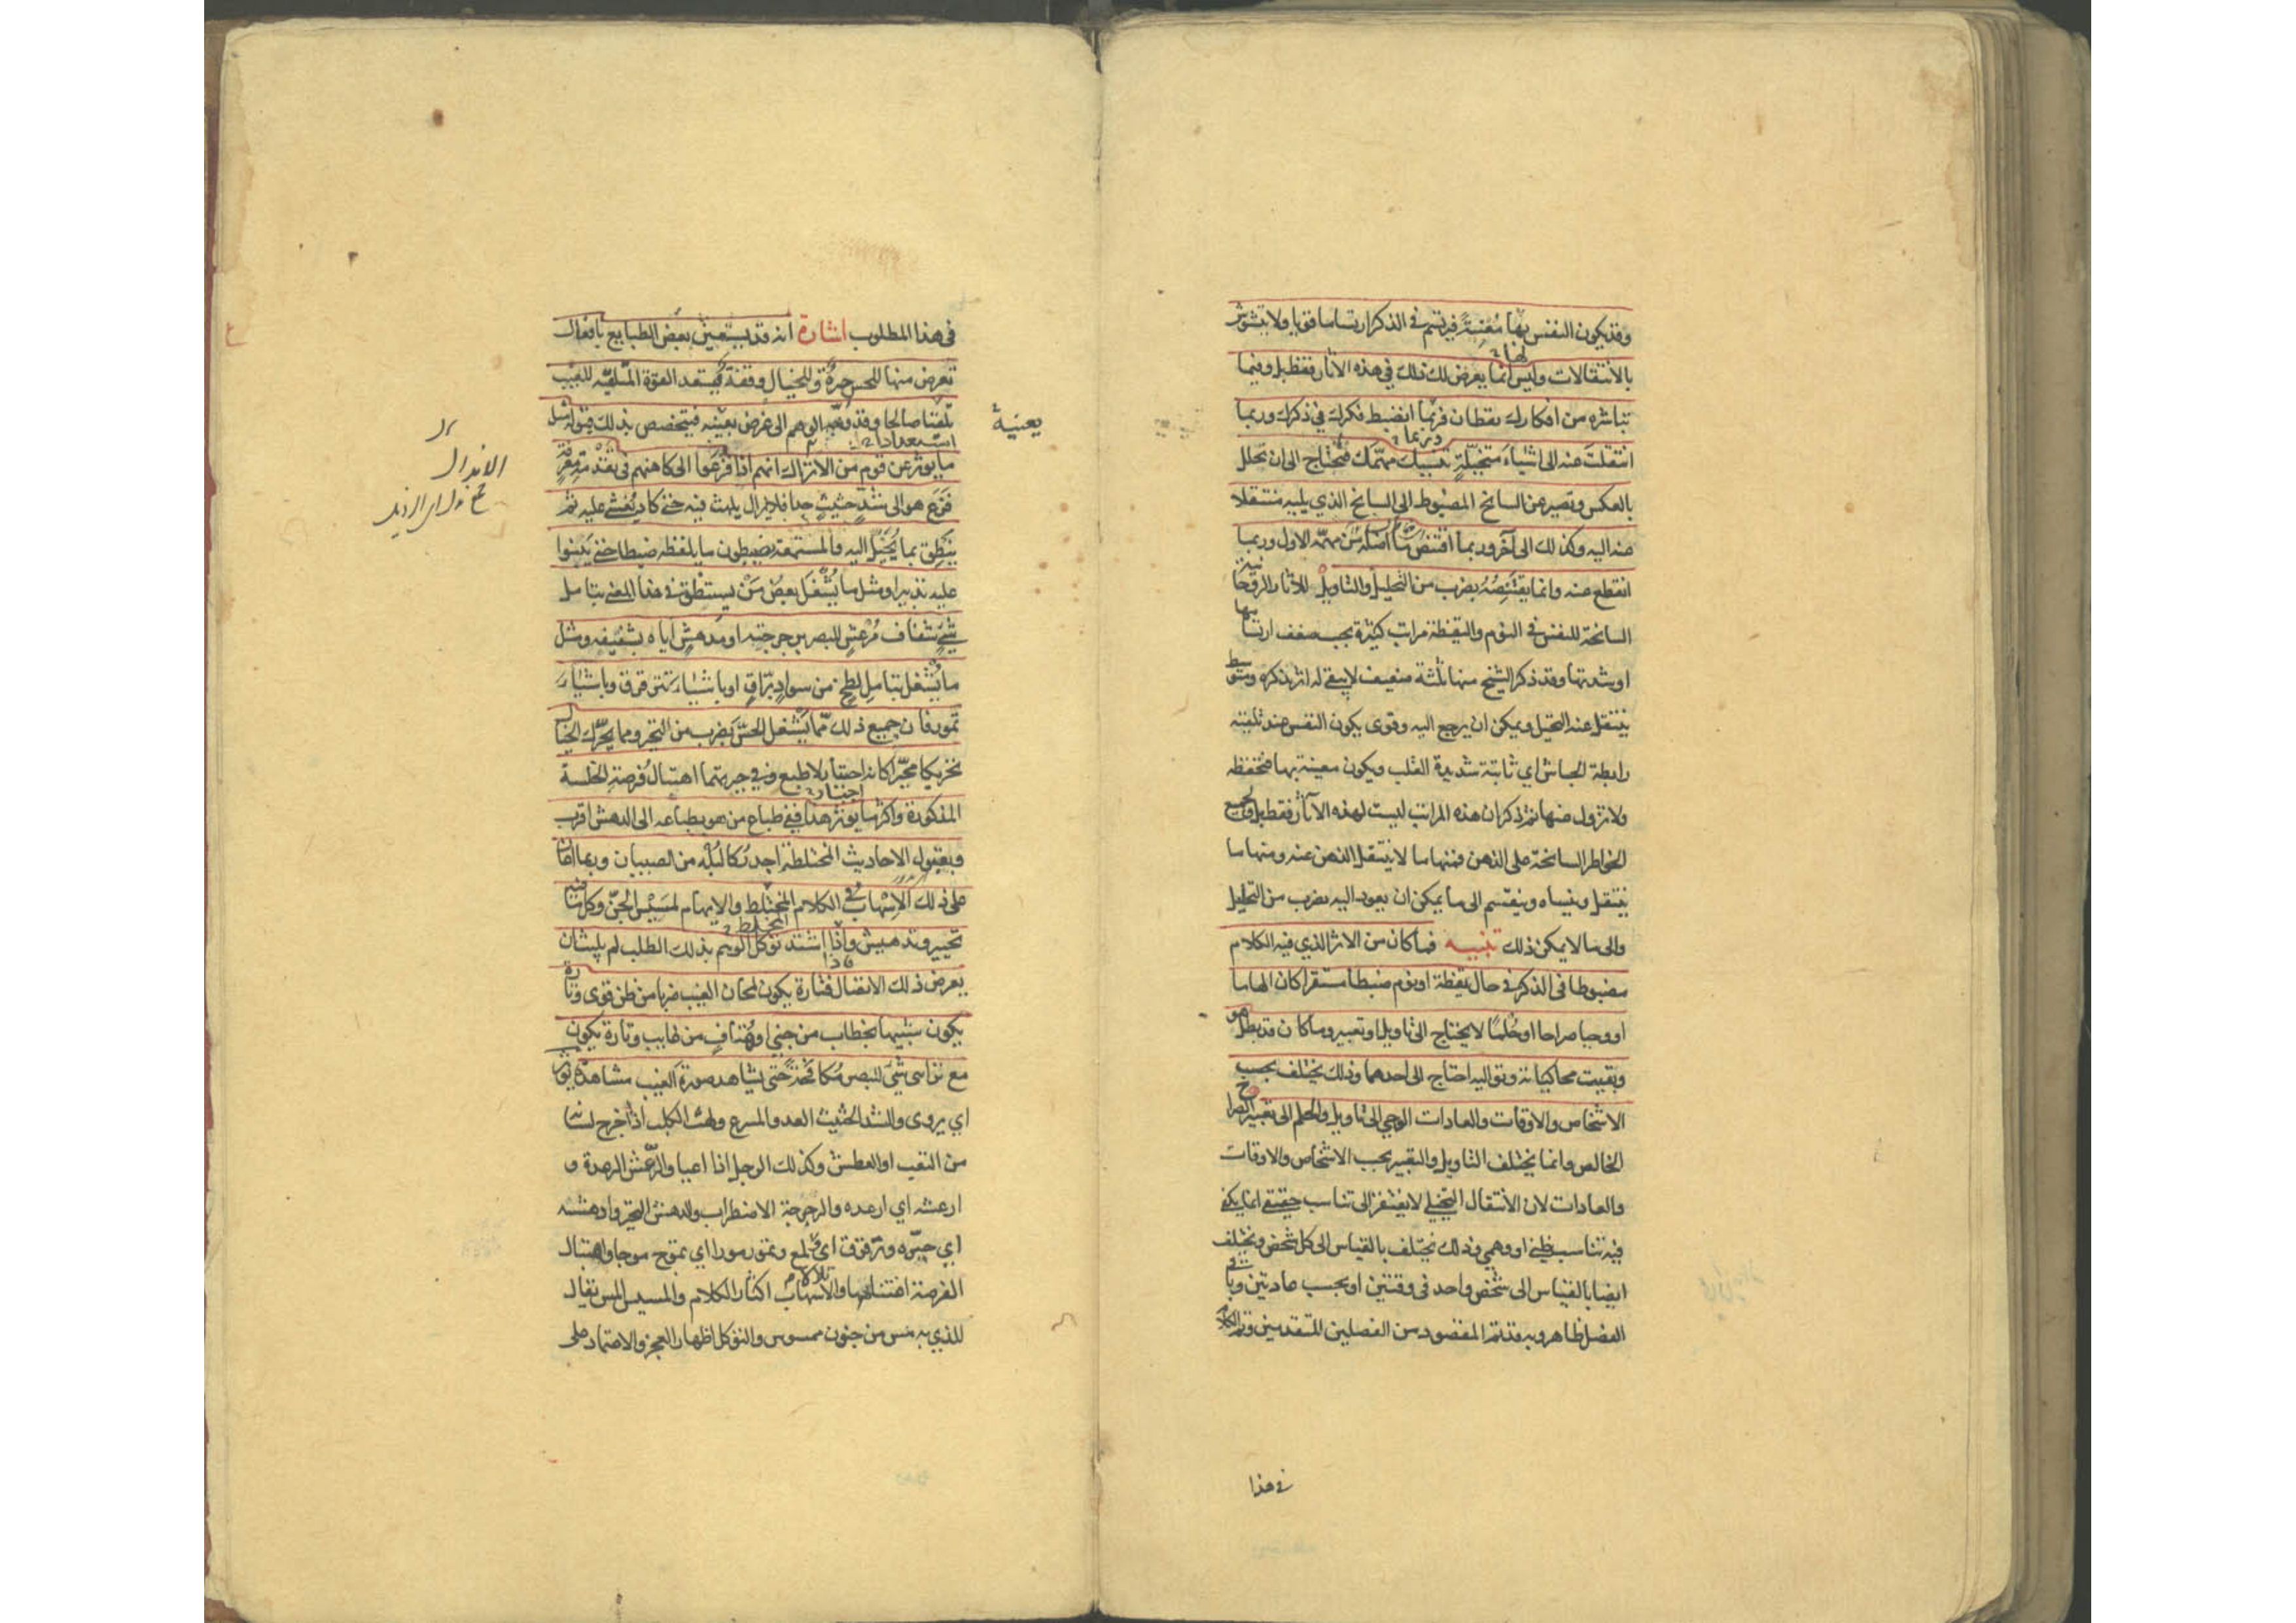 وقد يكون النفس بها مُعنِيةً فيرتسم في الذكر ارتساما قويا ولا يتشوش
لها
بالانتقالات وليس انما يعرض لك ذلك في هذه الاثار فقط بل وفيما
تباشره من افكارك يقظان فربما انضبط فكرك في ذكرك وربما
وربما
انتقلت عنه الى اشياء متخيلة تنسيك مهمك فتحتاج الى ان تحلل
بالعكس وتصير عن السانح المضبوط الى السانح الذي يليه منتقلا
عنه اليه وكذلك الى آخر وربما اقتنص ما اضله من مهمه الاول وربما
انقطع عنه وانما يقتنصه بضرب من التحليل والتاويل للاثار الروحانية
السانحة للنفس في النوم واليقظة مراتب كثيرة بحسب ضعف ارتسامها
او شدتها وقد ذكر الشيخ منها ثلثة ضعيف لا يبقى له اثر يذكره ومتوسط
ينتقل عنه التخيل ويمكن ان يرجع اليه وقوى يكون النفس عند تلقيه
رابطة الجاش اي ثابتة شديدة القلب ويكون معينة بها فتحفظه
ولا تزول عنها ثم ذكر ان هذه المراتب ليست لهذه الآثار فقط بل ولجميع
الخواطر السانحة على الذهن فمنها ما لا ينتقل الذهن عنه ومنها ما
ينتقل وينساه وينقسم الى ما يمكن ان يعود اليه بضرب من التحليل
والى ما لا يمكن ذلك تنبيه فما كان من الاثر الذي فيه الكلام
مضبوطا في الذكر في حال يقظة او نوم ضبطا مستقرا كان الهاما
او وحيا صراحا او حُلما لا يحتاج الى تاويل او تعبير وما كان قد بطل هو
وبقيت محاكياته وتواليه احتاج الى احدهما وذلك يختلف بحسب
الاشخاص والاوقات والعادات الوحي الى تاويل والحلم الى تعبير الصراح
الخالص وانما يختلف التاويل والتعبير بحسب الاشخاص والاوقات
والعادات لان الانتقال التخيلي لا يفتقر الى تناسب حقيقي انما يكفي
فيه تناسب ظني او وهمي وذلك يختلف بالقياس الى كل شخص ويختلف
ايضا بالقياس الى شخص واحد في وقتين او بحسب عادتين وباقي
الفصل ظاهر وبه قد تم المقصود من الفصلين المتقدمين وتم الكلام
في هذا
في هذا المطلوب اشارة انه قد يستعين بعض الطبايع بافعال
تعرض منها للحس حيرة وللخيال وقفة فيستعد القوة المتلقية للغيب
تلقيا صالحا وقد وُجّه الوهم الى غرض بعينه فيتخصص بذلك قبوله مثل
يعنيه
استعدادا
ما يوثر عن قوم من الاتراك انهم اذا فزعوا الى كاهنهم في تقدمة معرفة
فزع هو الى شدٍّ حثيثٍ جدا فلا يزال يلهث فيه حتى كاد يُغشى عليه ثم
ينطق بما يُخيَّل اليه والمستمعة يضبطون ما يلفظه ضبطا حتى يبنوا
عليه تدبيرا ومثل ما يُشغل بعض من يستنطق في هذا المعنى بتامل
شيءٍ شفاف مُرعش للبصر برجرجته او مُدهش اياه بشفيفه ومثل
ما يُشغل بتامل لطخ من سواد براق او باشياء تترقرق وباشياء
تمور فان جميع ذلك مما يشغل الحس بضرب من التحير ومما يحرك الخيال
تحريكا محيّرا كانه اجبار لا طبع وفي حيرتهما اهتبال فرصة الخلسة
اجبار
المذكورة واكثر ما يوثر هذا ففي طباع من هو بطباعه الى الدهش اقرب
وبقبول الاحاديث المختلطة اجدر كالبُله من الصبيان وربما اعان
على ذلك الاسهاب في الكلام المختلط والايهام لمسيس الجن وكل ما فيه
المختلط
تحيير وتدهيش واذا اشتد توكل الوهم بذلك الطلب لم يلبث ان
فاذا
يعرض ذلك الاتصال فتارة يكون لمحان الغيب ضربا من ظن قوى وتارة
يكون شبيها بخطاب من جني او هُتاف من غايب وتارة يكون
مع تراءى شيء للبصر مُكافحةً حتى يشاهد صورة الغيب مشاهدة يوثر
اي يروى والشد الحثيث العدو المسرع ولهث الكلب اذا اخرج لسانه
من التعب او العطش وكذلك الرجل اذا اعيا والرعش الرعدة و
ارعشه اي ارعده والرجرجة الاضطراب والدهش التحير وادهشه
اي حيّره وترقرق اي تلالا ولمع وتمور مورا اي تموج موجا واهتبال
الفرصة اغتنامها والاسهاب اكثار الكلام والمسيس المس يقال
للذي به مس من جنون ممسوس والتوكل اظهار العجز والاعتماد على